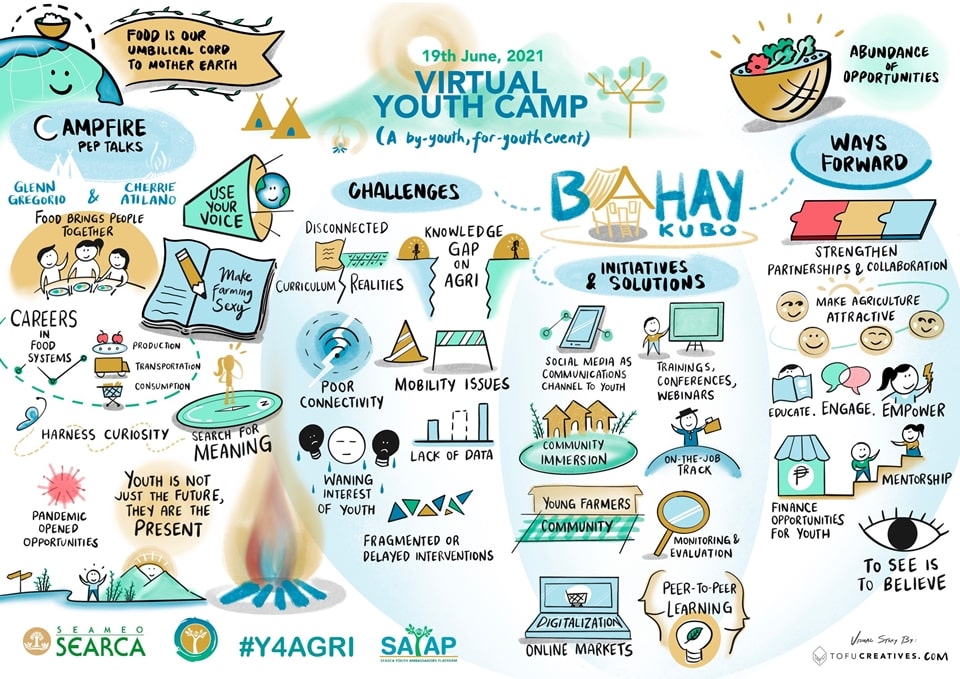 FOOD IS OUR
UMBILICAL CORD
TO MOTHER EARTH
19th June, 2021
VIRTUAL
YOUTH CAMP
(A by-youth, for-youth event)
ABUNDANCE
OF
OPPORTUNITIES
CAMPFIRE
PEP TALKS
GLENN
GREGORIO
&
CHERRIE
ATILANO
FOOD BRINGS PEOPLE
TOGETHER
USE
YOUR
VOICE
Make
Farming
Sexy
CAREERS
IN
FOOD
SYSTEMS
PRODUCTION
TRANSPORTATION
CONSUMPTION
HARNESS CURIOSITY
N
SEARCH FOR
MEANING
PANDEMIC
OPENED
OPPORTUNITIES
YOUTH IS NOT
JUST THE FUTURE,
THEY ARE THE
PRESENT
CHALLENGES
DISCONNECTED
CURRICULUM
REALITIES
KNOWLEDGE
GAP
ON
AGRI
POOR
CONNECTIVITY
MOBILITY ISSUES
WANING
INTEREST
OF YOUTH
LACK OF DATA
FRAGMENTED OR
DELAYED INTERVENTIONS
BAHAY
KUBO
INITIATIVES
& SOLUTIONS
SOCIAL MEDIA AS
COMMUNICATIONS
CHANNEL TO YOUTH
TRAININGS,
CONFERENCES,
WEBINARS
COMMUNITY
IMMERSION
ON-THE-JOB
TRACK
YOUNG FARMERS
COMMUNITY
MONITORING &
EVALUATION
DIGITALIZATION
ONLINE MARKETS
PEER-TO-PEER
LEARNING
WAYS
FORWARD
STRENGTHEN
PARTNERSHIPS & COLLABORATION
MAKE AGRICULTURE
ATTRACTIVE
EDUCATE. ENGAGE. EMPOWER
₱
FINANCE
OPPORTUNITIES
FOR YOUTH
MENTORSHIP
TO SEE IS
TO BELIEVE
SEAMEO
SEARCA
#Y4AGRI
SAYAP
SEARCA YOUTH AMBASSADORS PLATFORM
VISUAL STORY BY:
TOFUCREATIVES.COM